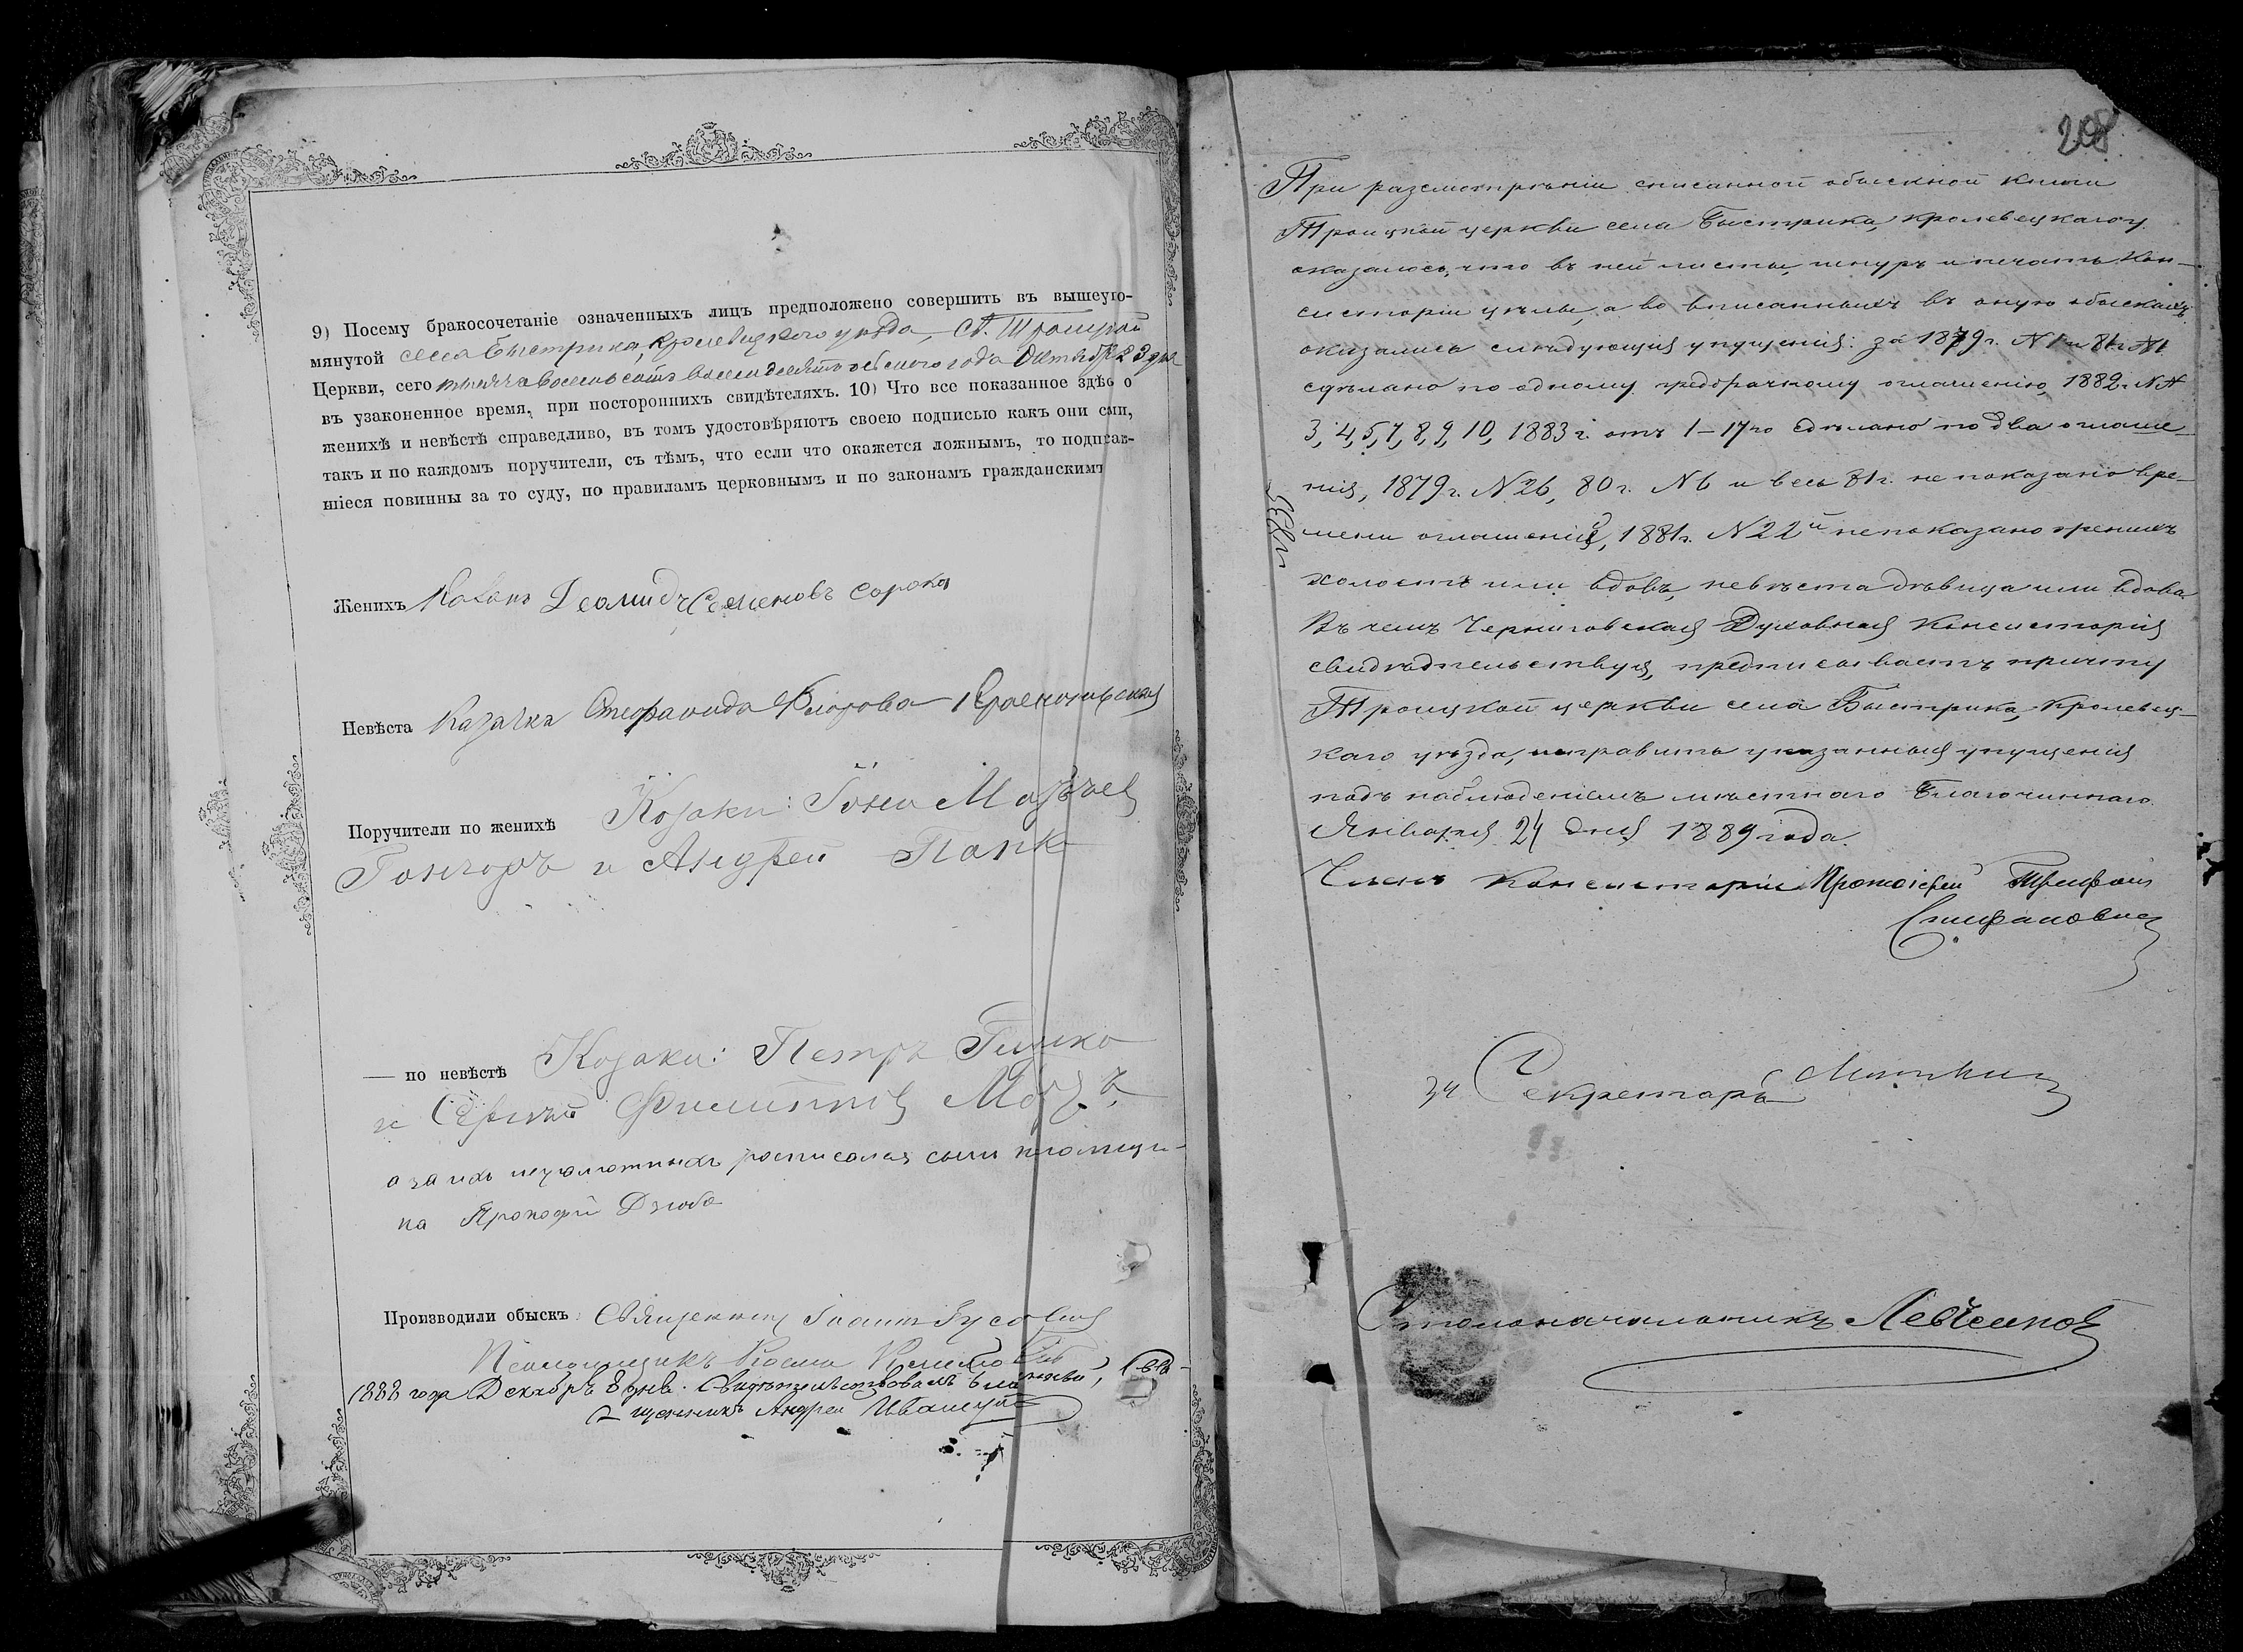 9) Посему бракосочетаніе означенныхъ лицъ предположено совершить въ вышеупо-
мянутой села Быстрика, Кролевецкаго уѣзда, Св. Троицкой
Церкви, сего тысяча восемьсотъ восемьдесятъ осьмого года Октября 23 дня
въ узаконенное время, при постороннихъ свидѣтеляхъ. 10) Что все показанное здѣсь о
женихѣ и невѣстѣ справедливо, въ томъ удостовѣряютъ своею подписью какъ они сами,
такъ и по каждомъ поручители, съ тѣмъ, что если что окажется ложнымъ, то подписав-
шіеся повинны за то суду, по правиламъ церковнымъ и по законамъ гражданскимъ
Женихъ Козакъ Леонидъ Семеновъ Сорока
Невѣста Казачка Стефанида
Поручители по женихѣ Козаки:
Гончаръ и Андрей
— по невѣстѣ Козаки: Петръ
и Сергѣй
а за ихъ неграмотныхъ росписался сынъ псаломщи-
ка Прокофій Дзюба
Производили обыскъ: Священникъ Іоаннъ
Псаломщикъ Косма
1888 года Декабрь 8 дня. Свидѣтельствовалъ Благочинный, Свя-
щенникъ Андрей
208
При разсмотрѣніи списанной обыскной книги
Троицкой церкви села Быстрика, Кролевецкаго у.
оказалось, что въ ней листы, шнуръ и печать Кон-
систоріи цѣлы, а во вписанныхъ въ оную обыскахъ
оказались слѣдующія упущенія: за 1879 г. N 1 и 81 г. N 1
сдѣлано по одному предбрачному оглашенію, 1882 г. NN
3, 4, 5, 7, 8, 9, 10, 1883 г. отъ 1–17го сдѣлано по два оглаше-
нія, 1879 г. N 26, 80 г. N 6 и весь 81 г. не показано вре-
мени оглашеній, 1881 г. N 22й не показано женихъ
холостъ или вдовъ, невѣста дѣвица или вдова.
Въ чемъ Черниговская Духовная Консисторія
свидѣтельствуя, предписываетъ причту
Троицкой церкви села Быстрика, Кролевец-
каго уѣзда, исправить указанныя упущенія
подъ наблюденіемъ мѣстнаго Благочиннаго.
Января 24 дня 1889 года.
Членъ Консисторіи Протоіерей Трифонъ
Стефановскій
За Секретаря
Столоначальникъ Левченко